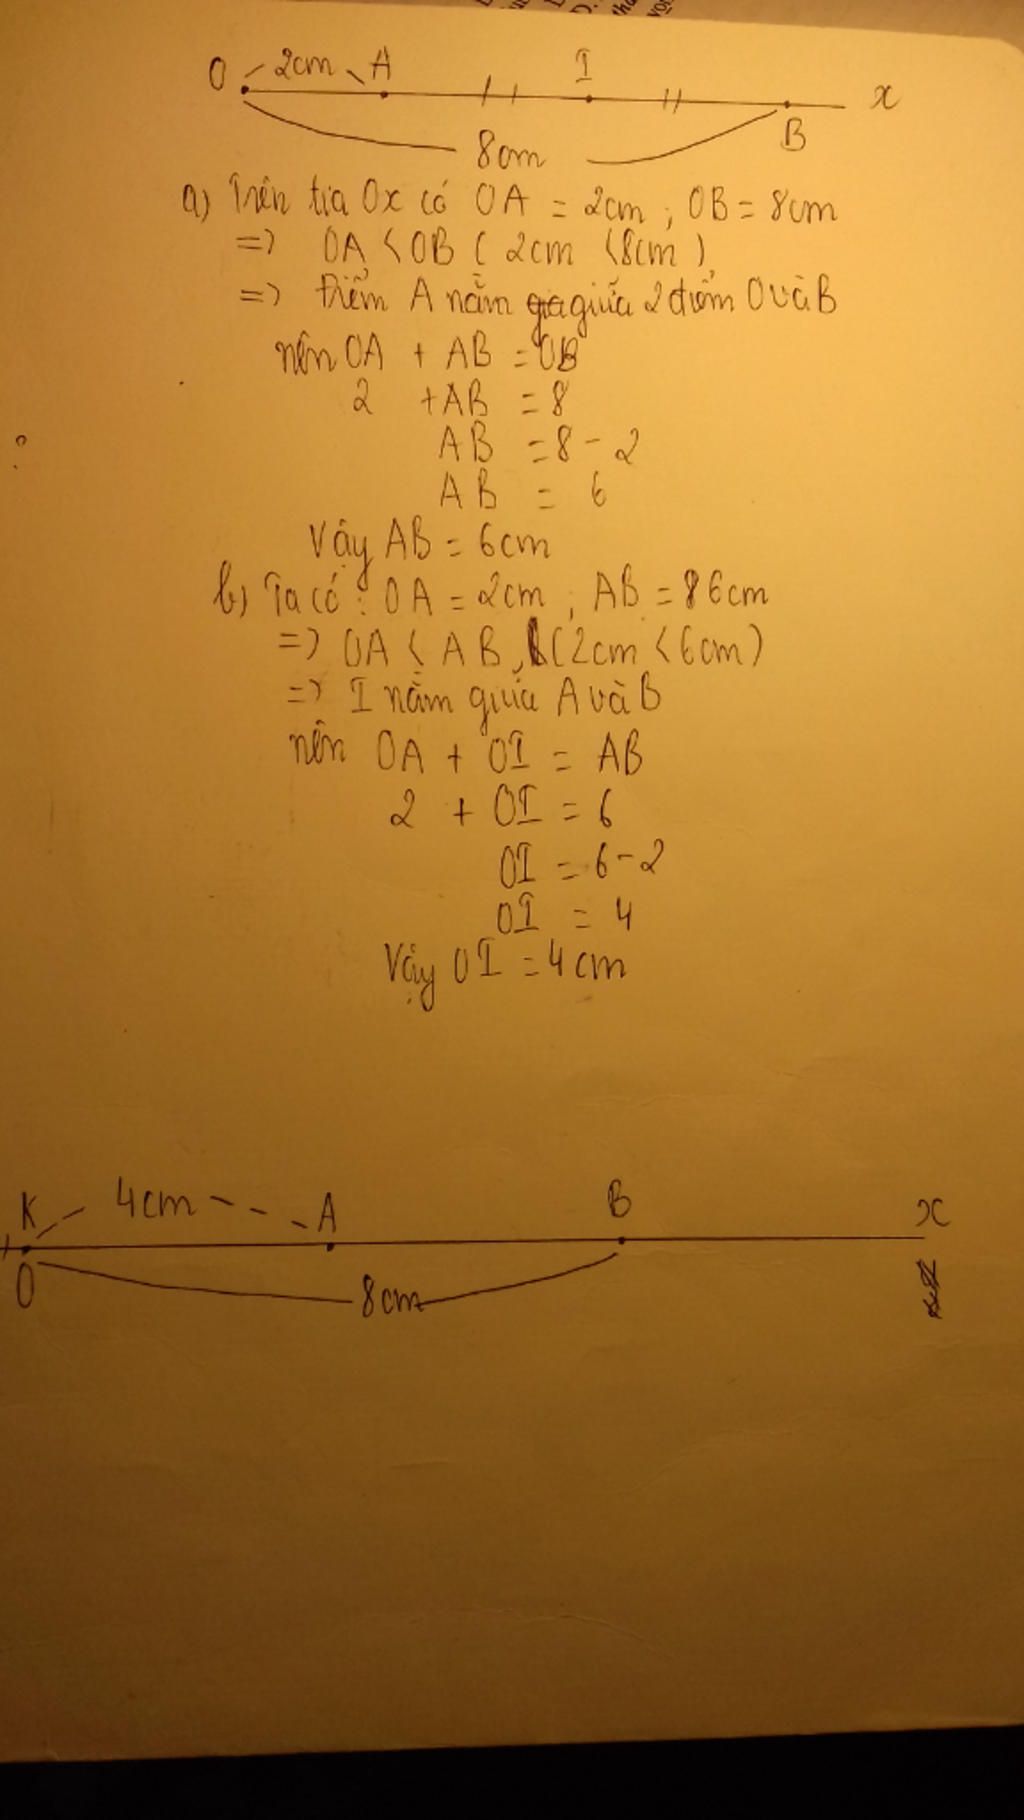 O 2cm A I x
B
8cm
a) Trên tia Ox có OA = 2cm ; OB = 8cm
=> OA < OB ( 2cm < 8cm )
=> Điểm A nằm giữa 2 điểm O và B
nên OA + AB = OB
2 + AB = 8
AB = 8 - 2
AB = 6
Vậy AB = 6cm
b) Ta có : OA = 2cm ; AB = 6cm
=> OA < AB (2cm < 6cm)
=> I nằm giữa A và B
nên OA + OI = AB
2 + OI = 6
OI = 6 - 2
OI = 4
Vậy OI = 4cm
K 4cm A B x
O
8cm